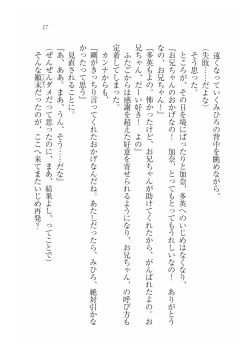 17
遠くなっていくみひろの背中を眺めながら、
(失敗……だよな)
そう思った。
ところが、その日を境にぱったりと加奈、多英へのいじめはなくなり、
「お兄ちゃんのおかげなの! 加奈、とってもとってもうれしいなの! ありがとう
なの、お兄ちゃん!」
「多英もよの。怖かったけど、お兄ちゃんが助けてくれたから、がんばれたよの。お
兄ちゃん、だいい好き! よの」
ふたごからは感謝を超えた好意を寄せられるようになり、お兄ちゃん、の呼び方も
定着してしまった。
カンナからも、
「剛がきっちり言ってくれたおかげなんだね。あたしだったら、みひろ、絶対引かな
かったって思う」
見直されることに。
「あ、ああ。まあ、うん、そう……だな」
(ぜんぜんダメだって思ったのに、まあ、結果よし、ってことで)
そんな顛末だったのが、ここへ来てまたいじめ再発?